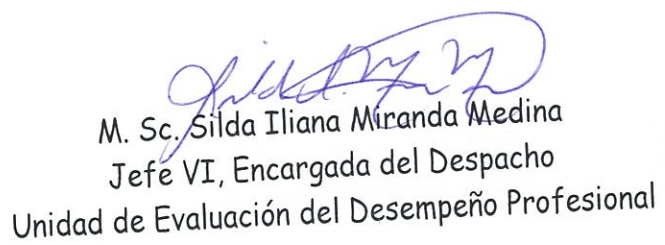 M. Sc. Silda Iliana Miranda Medina
Jefe VI, Encargada del Despacho
Unidad de Evaluación del Desempeño Profesional